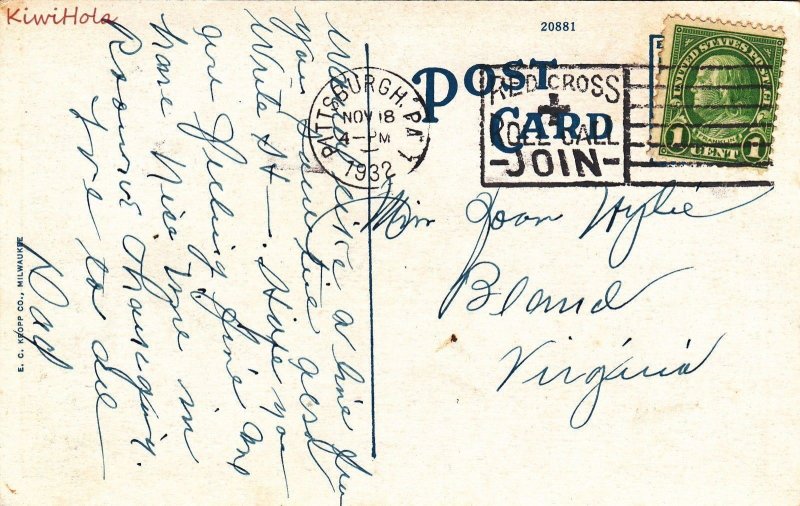 KiwiHola
20881
POST
CARD
PITTSBURGH, PA.
NOV 18
4-PM
1932
RED CROSS
ROLL CALL
-JOIN-
UNITED STATES POSTAGE
1 CENT 1
Would like a line from
you if you
Write it -. Hope you
are feeling fine and
have nice time in
Roanoke Thanksgiving.
Love to all
Dad
Miss Joan Hylie
Bland
Virginia
E. C. KROPP CO., MILWAUKEE